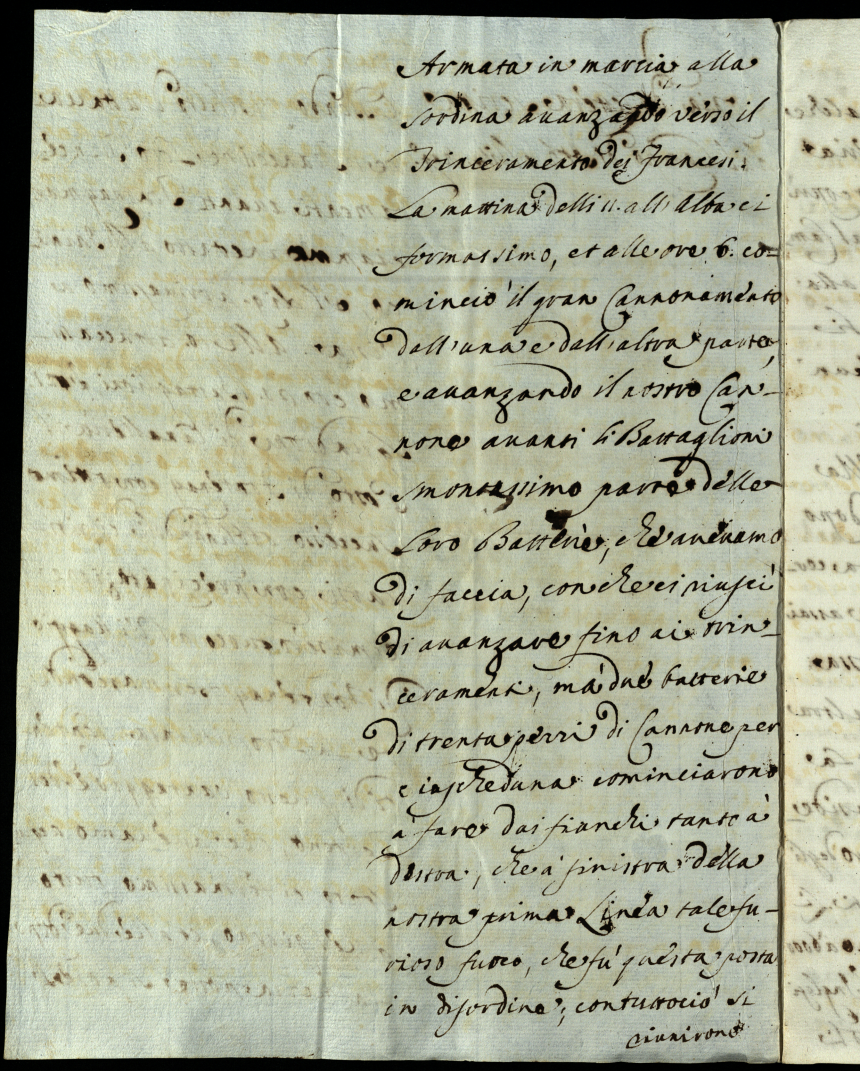 Armata in marcia alla
sordina avanzando verso il
Trinceramento dei Francesi.
La mattina delli 11. all'Alba ci
formassimo, et alle ore 6. co=
minciò il gran Cannonamento
dall'una e dall'altra parte,
e avanzando il nostro Can-
none avanti li Battaglioni
smontassimo parte delle
Loro Batterie, che avevamo
di faccia, con che ci riuscì
di avanzare fino ai trin-
ceramenti, mà due batterie
di trenta pezzi di Cannone per
ciascheduna cominciarono
à fare dai fianchi tanto à
destra, che à sinistra della
nostra prima Linea tale fu-
rioso fuoco, che fù questa posta
in disordine; contuttociò si
riunirono